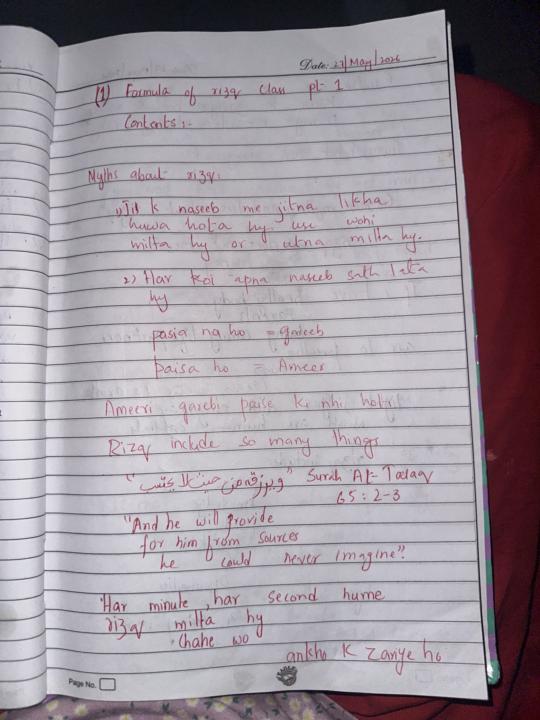 Date: 27/May/2026
(1) Formula of rizq Class pt 1
Contents:-
Myths about rizq:
1) Jis k naseeb me jitna likha
huwa hota hy use wohi
milta hy or utna milta hy.
2) Har koi apna naseeb sath lata
hy
pasia na ho = gareeb
paisa ho = Ameer
Ameeri garebi paise ki nhi hoti
Rizq include so many things
"ويرزقه من حيث لا يحتسب" Surah At-Talaq
65:2-3
"And he will provide
for him from sources
he could never imagine".
Har minute, har second hume
rizq milta hy
chahe wo
ankho k zariye ho
Page No.